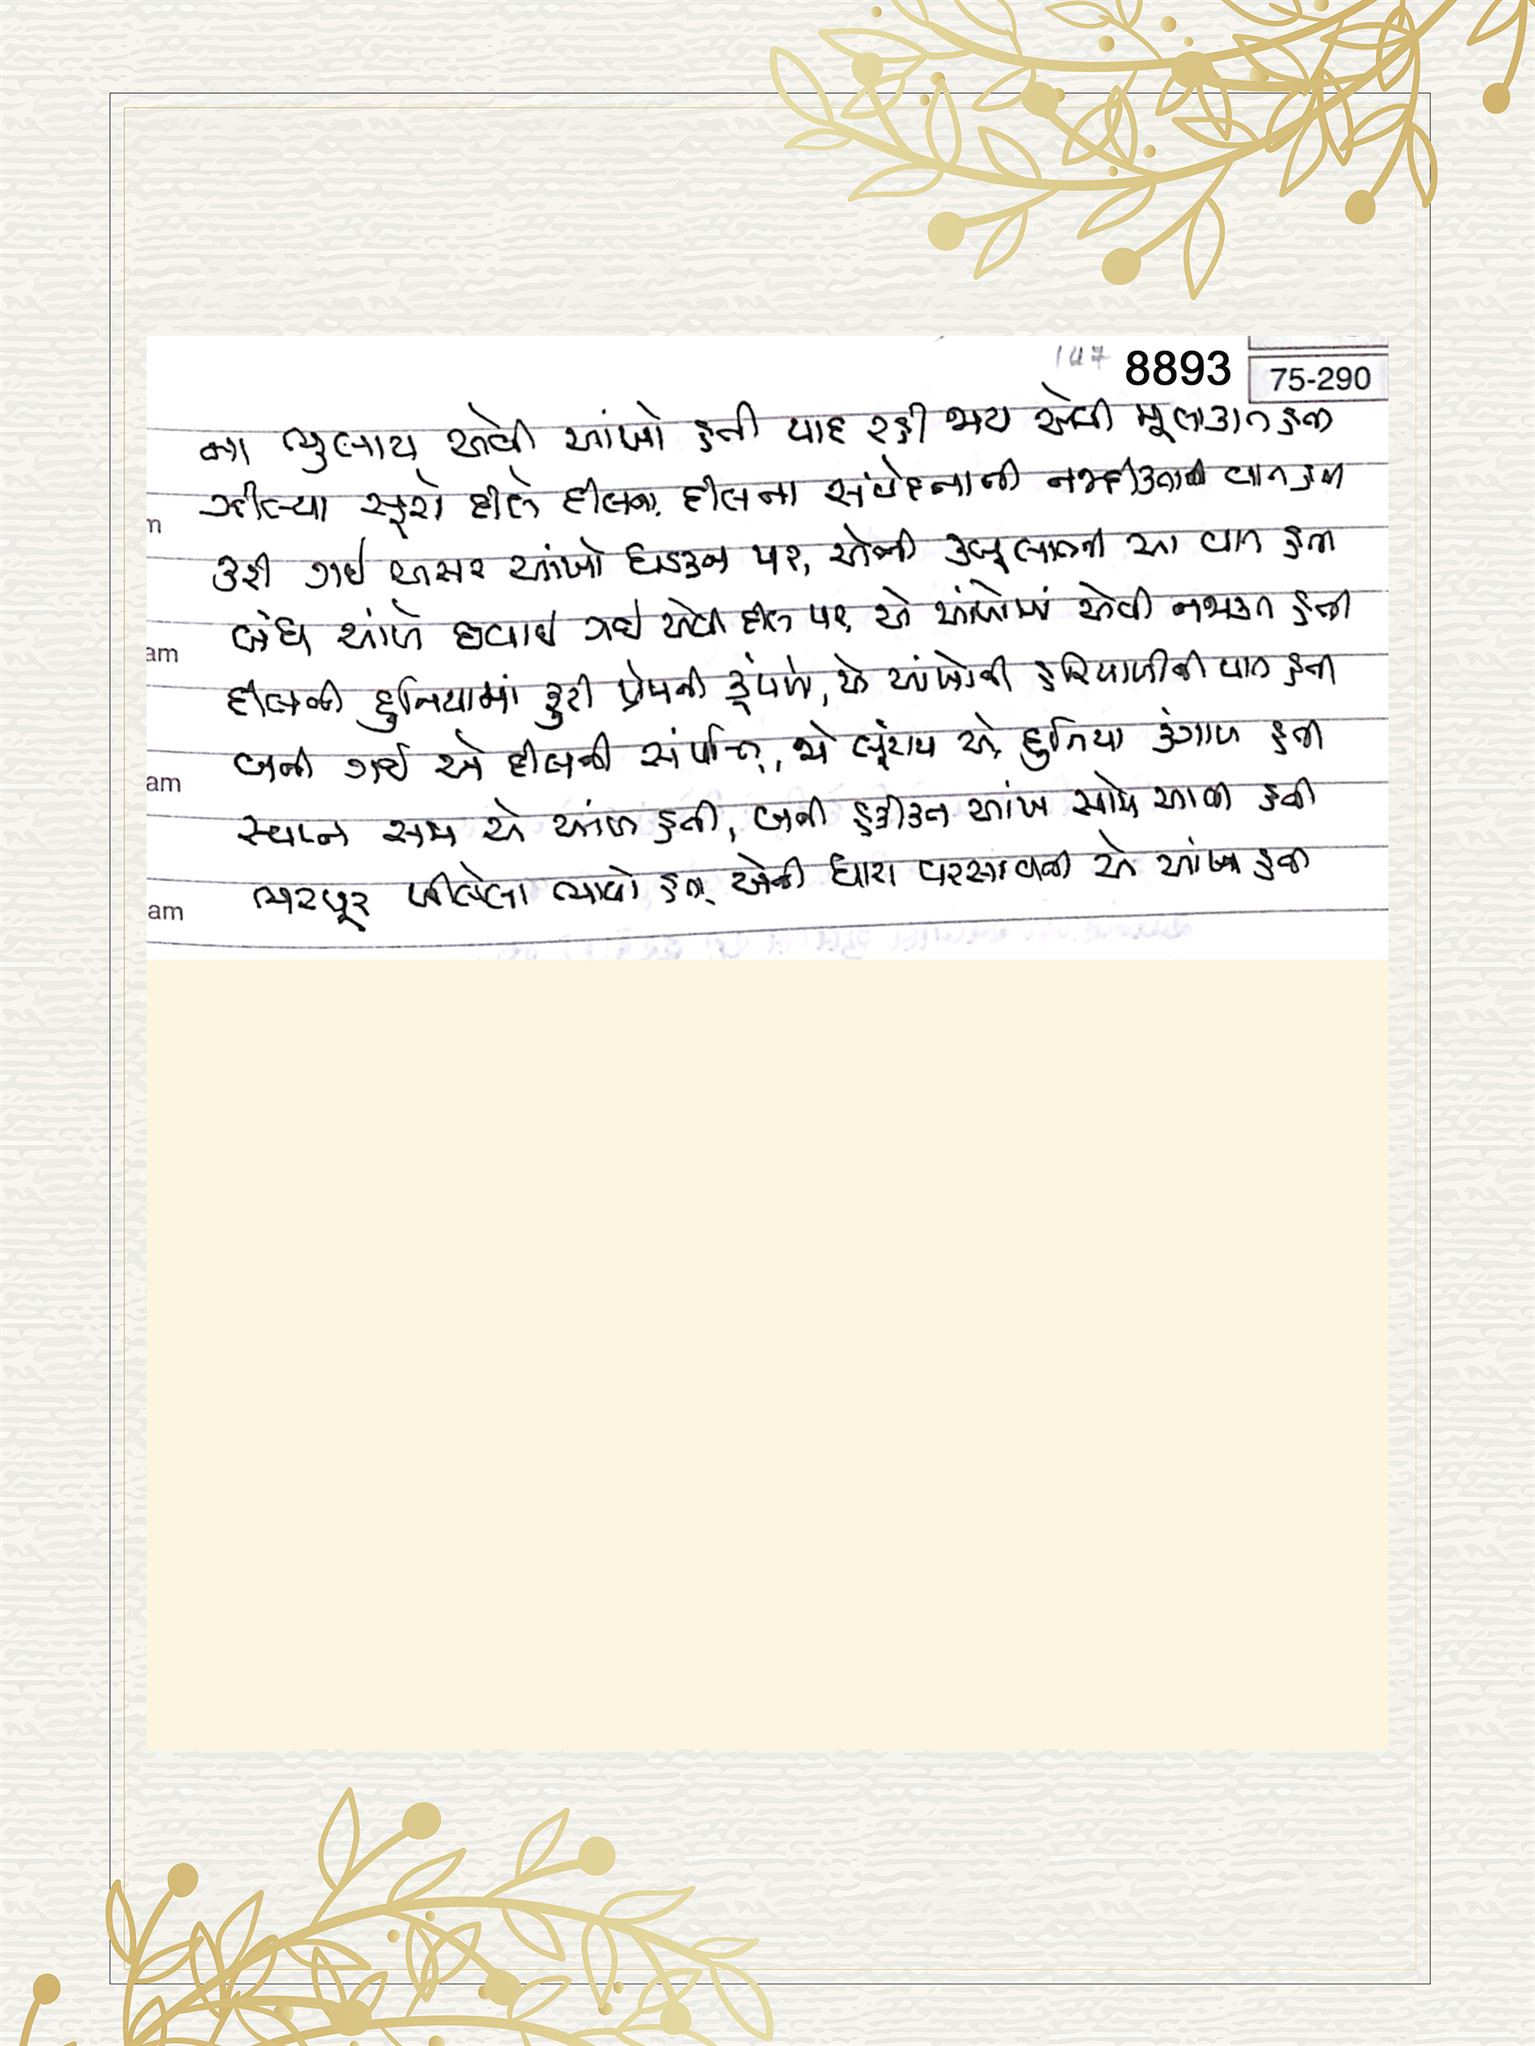 147 8893 75-290
ના ભુલાય એવી આંખો હતી યાદ રહી જાય એવી મુલાકાત હતી
ઝીલ્યા સૂરો દીલે દીલના, દીલના સંવેદનાની નજદીકતાની વાત હતી
કરી ગઈ અસર આંખો ધડકન પર, એની કબૂલાતની આ વાત હતી
બંધ આંખે છવાઈ ગઈ એવી દીલ પર, એ આંખોમાં એવી નજાકત હતી
દીલની દુનિયામાં ફુટી પ્રેમની કૂંપળો, એ આંખોની હરિયાળીની વાત હતી
બની ગઈ એ દીલની સંપત્તિ, જો લૂંટાય એ, દુનિયા કંગાળ હતી
સ્વપ્ન સમ એ આંખ હતી, બની હકીકત આંખ સામે આવી હતી
ભરપૂર ખીલેલા ભાવો હતા એની ધારા વરસાવતી એ આંખ હતી
m
am
am
am